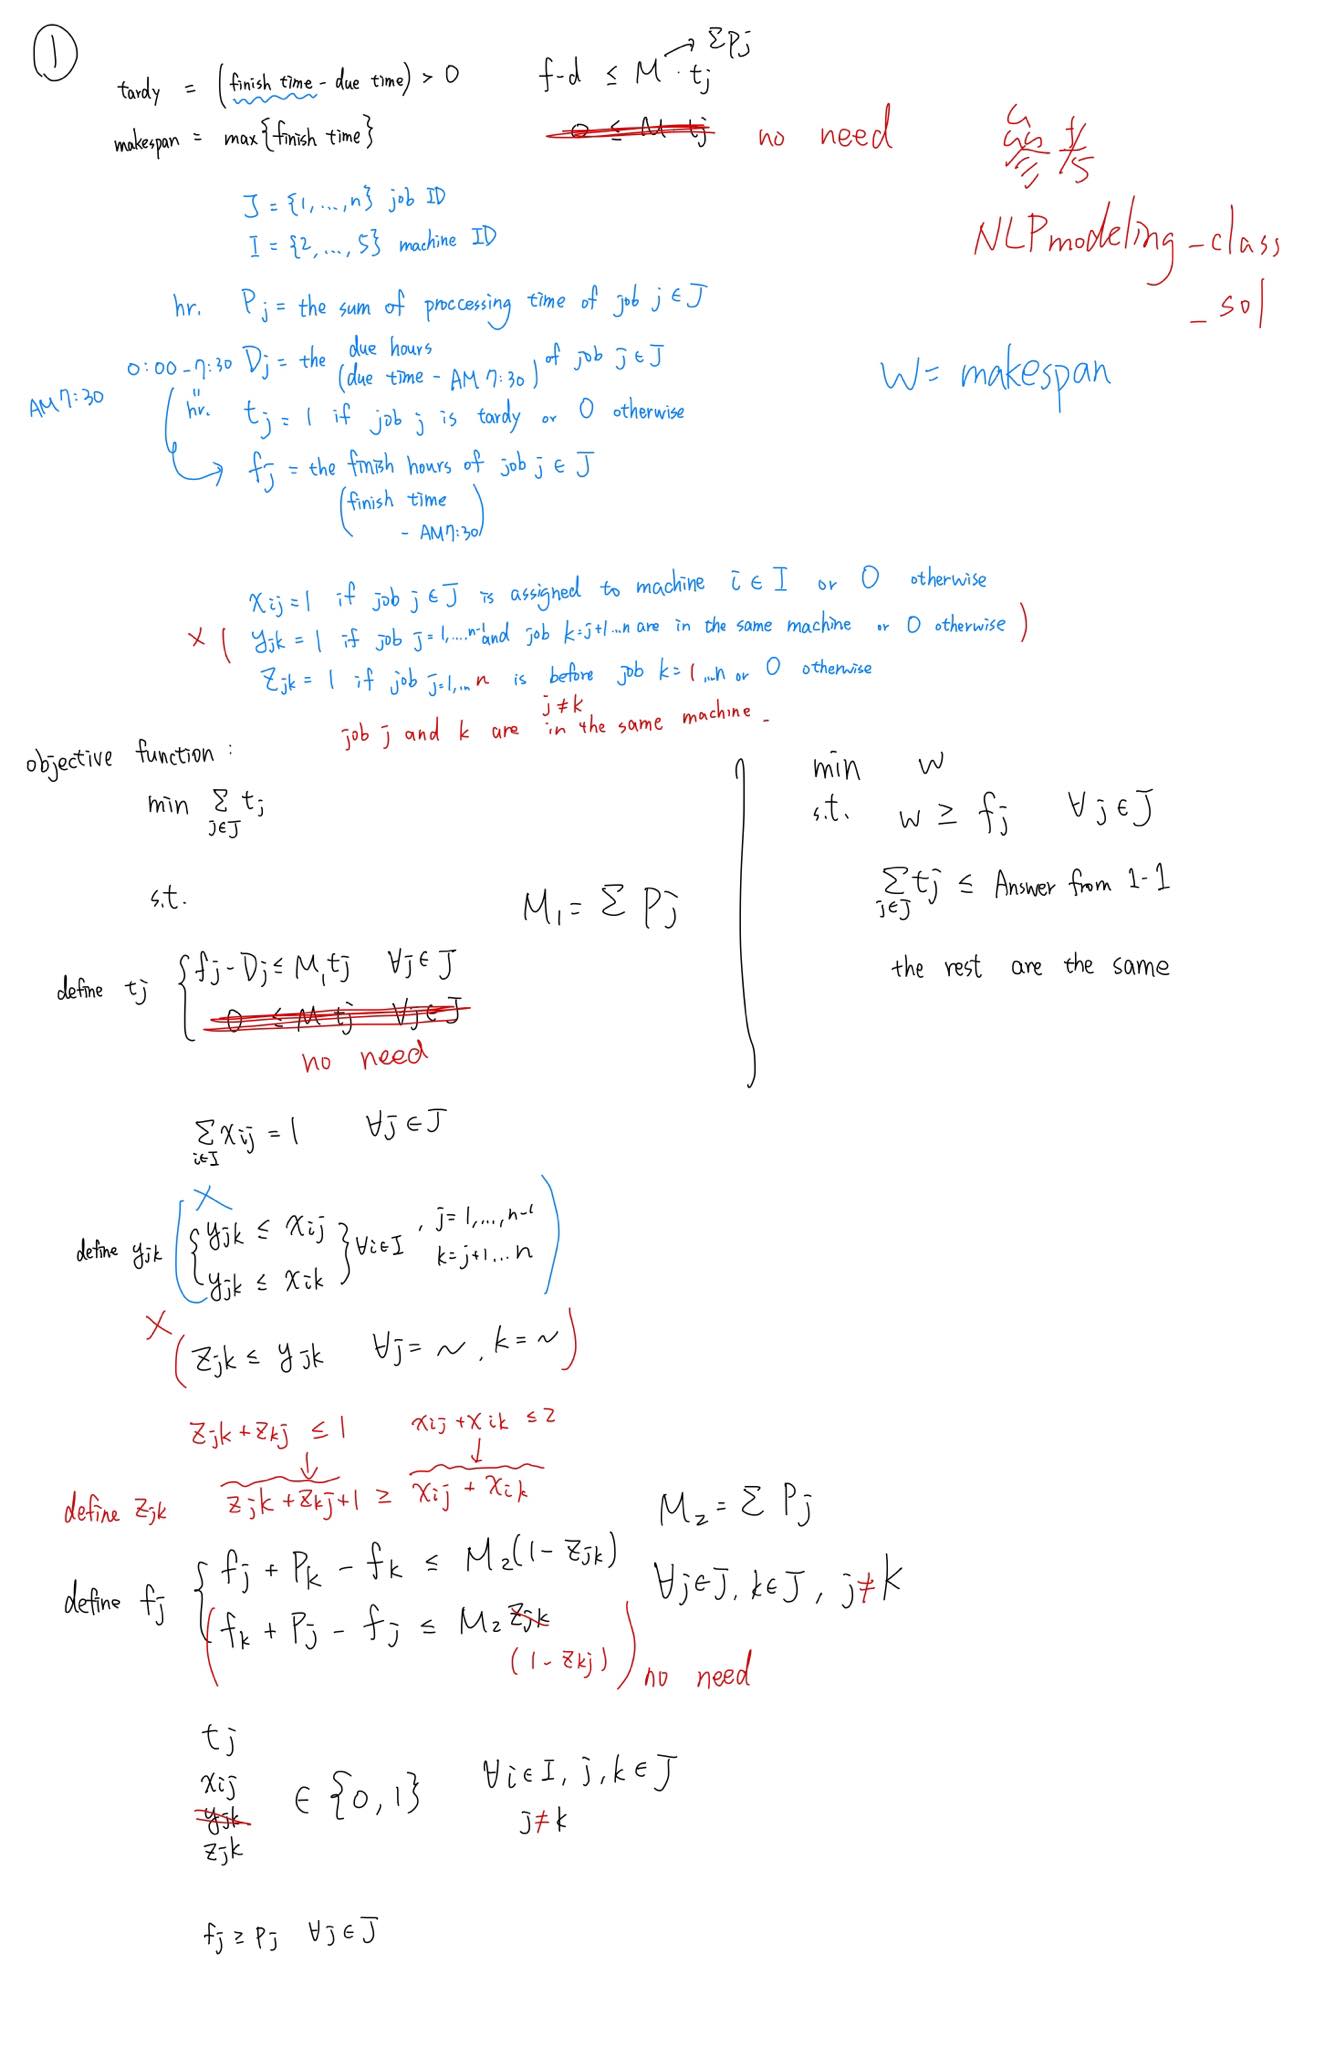 ①
tardy = (finish time - due time) > 0
f-d ≤ M · tj → ΣPj
makespan = max{finish time}
0 ≤ M tj no need
參考
NLPmodeling_class
_sol
J = {1,...,n} job ID
I = {2,...,5} machine ID
hr. Pj = the sum of proccessing time of job j ∈ J
0:00-7:30 Dj = the due hours (due time - AM 7:30) of job j ∈ J
W = makespan
AM 7:30
hr. tj = 1 if job j is tardy or 0 otherwise
fj = the finish hours of job j ∈ J
(finish time
- AM 7:30)
xij = 1 if job j ∈ J is assigned to machine i ∈ I or 0 otherwise
× ( yjk = 1 if job j=1,...,n-1 and job k=j+1...n are in the same machine or 0 otherwise )
zjk = 1 if job j=1,...n is before job k=1...n or 0 otherwise
j≠k
job j and k are in the same machine.
objective function :
min Σ tj
j∈J
s.t.
M₁ = Σ Pj
define tj { fj - Dj ≤ M₁tj ∀j ∈ J
0 ≤ M tj ∀j ∈ J
no need
min w
s.t. w ≥ fj ∀j ∈ J
Σ tj ≤ Answer from 1-1
j∈J
the rest are the same
Σ xij = 1 ∀j ∈ J
i∈I
×
define yjk { yjk ≤ xij
yjk ≤ xik } ∀i∈I , j=1,...,n-1
k=j+1...n
× ( zjk ≤ yjk ∀j = ~ , k = ~ )
zjk + zkj ≤ 1 xij + xik ≤ 2
define zjk zjk + zkj + 1 ≥ xij + xik
M₂ = Σ Pj
define fj { fj + Pk - fk ≤ M₂(1 - zjk)
∀j∈J, k∈J, j≠k
( fk + Pj - fj ≤ M₂ zjk
(1 - zkj) ) no need
tj
xij
yjk
zjk
∈ {0,1} ∀i∈I, j,k∈J
j≠k
fj ≥ Pj ∀j ∈ J